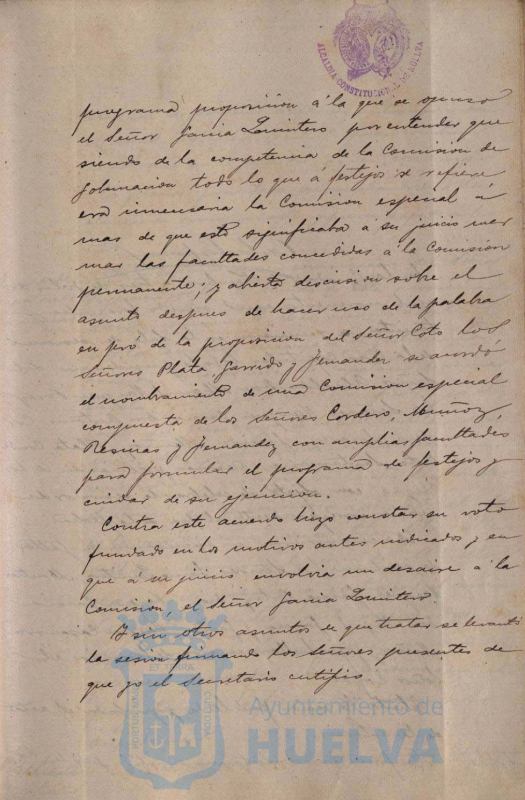 ALCALDIA CONSTITUCIONAL DE HUELVA
programa proposición á la que se opuso
el Señor Garcia Quintero por entender que
siendo de la competencia de la Comision de
Gobernacion todo lo que á festejos se refiere
era innecesaria la Comision especial á
mas de que esto significaba á su juicio mer
mar las facultades concedidas á la Comision
permanente; y abierta discusion sobre el
asunto despues de hacer uso de la palabra
en pró de la proposicion del Señor Coto los
Señores Plata, Garrido y Fernandez se acordó
el nombramiento de una Comision especial
compuesta de los Señores Cordero, Muñoz,
Resinas y Fernandez con amplias facultades
para formular el programa de festejos y
cuidar de su ejecucion.
Contra este acuerdo hizo constar su voto
fundado en los motivos antes indicados y en
que á su juicio envolvia un desaire á la
Comision, el Señor Garcia Quintero.
Y sin otros asuntos de que tratar se levantó
la sesion firmando los Señores presentes de
que yo el Secretario certifico
Ayuntamiento de
HUELVA